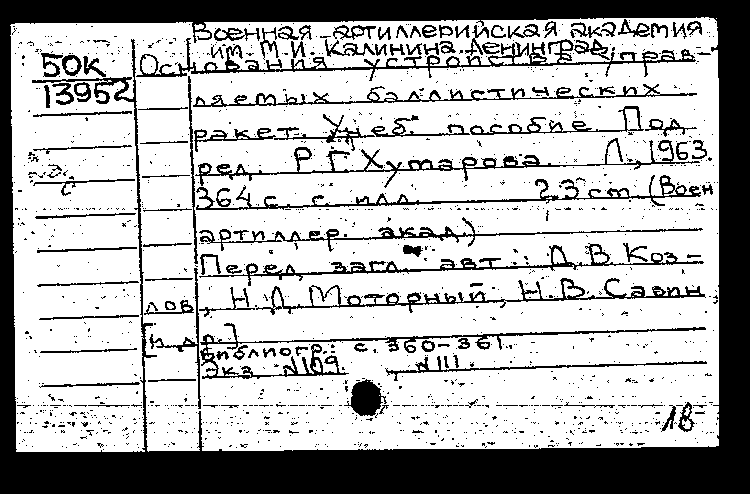 Военная артиллерийская академия
им. М.И. Калинина. Ленинград
50К Основания устройства управ-
13952 ляемых баллистических
ракет. Учеб. пособие. Под
ред. Р.Г. Хутарова. Л., 1963.
364 с. с илл. 23 cm (Воен
артиллер. акад.)
Перед загл. авт.: Д.В. Коз-
лов, Н.Д. Моторный, Н.В. Савин
[и др.]
Библиогр.: с. 360-361.
Экз. N109. N111.